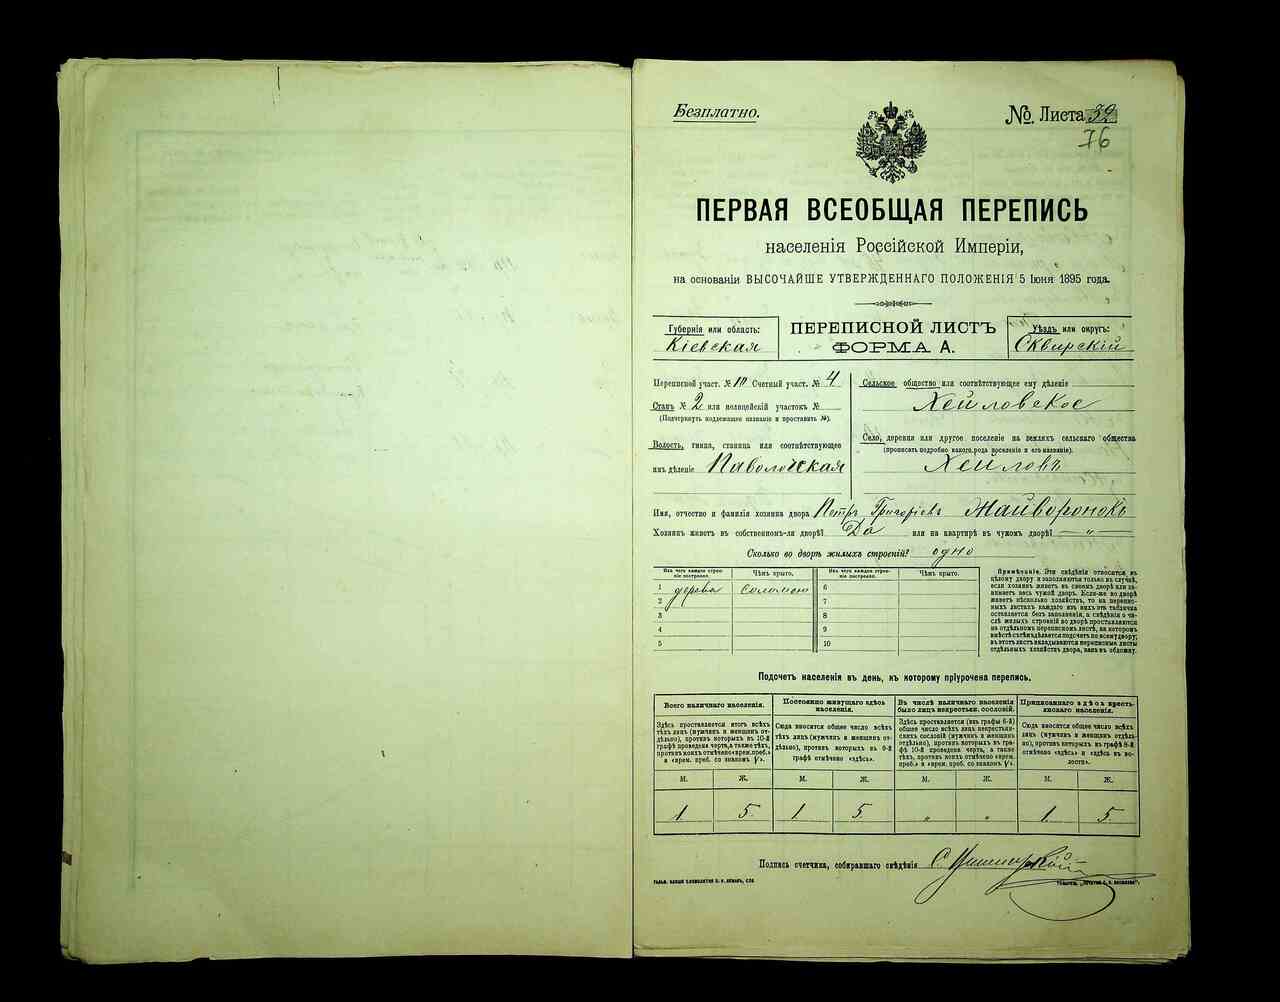 Безплатно.
№ Листа 39
76
ПЕРВАЯ ВСЕОБЩАЯ ПЕРЕПИСЬ
населенія Россійской Имперіи,
на основаніи ВЫСОЧАЙШЕ УТВЕРЖДЕННАГО ПОЛОЖЕНІЯ 5 Іюня 1895 года.
Губернія или область:
Кіевская
ПЕРЕПИСНОЙ ЛИСТЪ
ФОРМА А.
Уѣздъ или округъ:
Сквирскій
Переписной участ. № 10 Счетный участ. № 4
Станъ № 2 или полицейскій участокъ №
(Подчеркнуть подлежащее названіе и проставить №).
Волость, гмина, станица или соотвѣтствующее
имъ дѣленіе Паволочская
Сельское общество или соотвѣтствующее ему дѣленіе
Хейловское
Село, деревня или другое поселеніе на земляхъ сельскаго общества
(прописать подробно какого рода поселеніе и его названіе).
Хейловъ
Имя, отчество и фамилія хозяина двора Петръ Григоріевъ Жайворонокъ
Хозяинъ живетъ въ собственномъ-ли дворѣ? Да или на квартирѣ въ чужомъ дворѣ? — „ —
Сколько во дворѣ жилыхъ строеній? одно
Изъ чего каждое строеніе построено.
Чѣмъ крыто.
Изъ чего каждое строеніе построено.
Чѣмъ крыто.
1 дерева соломою 6
2 7
3 8
4 9
5 10
Примѣчаніе. Эти свѣдѣнія относятся къ
цѣлому двору и заполняются только въ случаѣ,
если хозяинъ живетъ въ своемъ дворѣ или занимаетъ
весь чужой дворъ. Если-же во дворѣ
живетъ нѣсколько хозяйствъ, то на переписныхъ
листахъ каждаго изъ нихъ эта табличка
оставляется безъ заполненія, а свѣдѣнія о числѣ
жилыхъ строеній во дворѣ проставляются
на отдѣльномъ переписномъ листѣ, на которомъ
вмѣстѣ съ тѣмъ дѣлается подсчетъ по всему двору;
въ этотъ листъ вкладываются переписные листы
отдѣльныхъ хозяйствъ двора, какъ въ обложку.
Подсчетъ населенія въ день, къ которому пріурочена перепись.
Всего наличнаго населенія.
Здѣсь проставляется итогъ всѣхъ
тѣхъ лицъ (мужчинъ и женщинъ отдѣльно),
противъ которыхъ въ 10-й
графѣ проведена черта, а также тѣхъ,
противъ коихъ отмѣчено «врем. преб.»
и «врем. преб. со знакомъ V».
Постоянно живущаго здѣсь
населенія.
Сюда вносится общее число всѣхъ
тѣхъ лицъ (мужчинъ и женщинъ отдѣльно),
противъ которыхъ въ 9-й
графѣ отмѣчено «здѣсь».
Въ числѣ наличнаго населенія
было лицъ некрестьян. сословій.
Здѣсь проставляется (изъ графы 6-й)
общее число всѣхъ лицъ некрестьянскихъ
сословій (мужчинъ и женщинъ
отдѣльно), противъ которыхъ въ графѣ
10-й проведена черта, а также
тѣхъ, противъ коихъ отмѣчено «врем.
преб.» и «врем. преб. со знакомъ V».
Приписаннаго здѣсь крестьянскаго
населенія.
Сюда вносится общее число всѣхъ
лицъ (мужчинъ и женщинъ отдѣльно),
противъ которыхъ въ графѣ 8-й
отмѣчено «здѣсь» и «здѣсь въ волости».
М. Ж. М. Ж. М. Ж. М. Ж.
1 5 1 5 „ „ 1 5
Подпись счетчика, собиравшаго свѣдѣнія